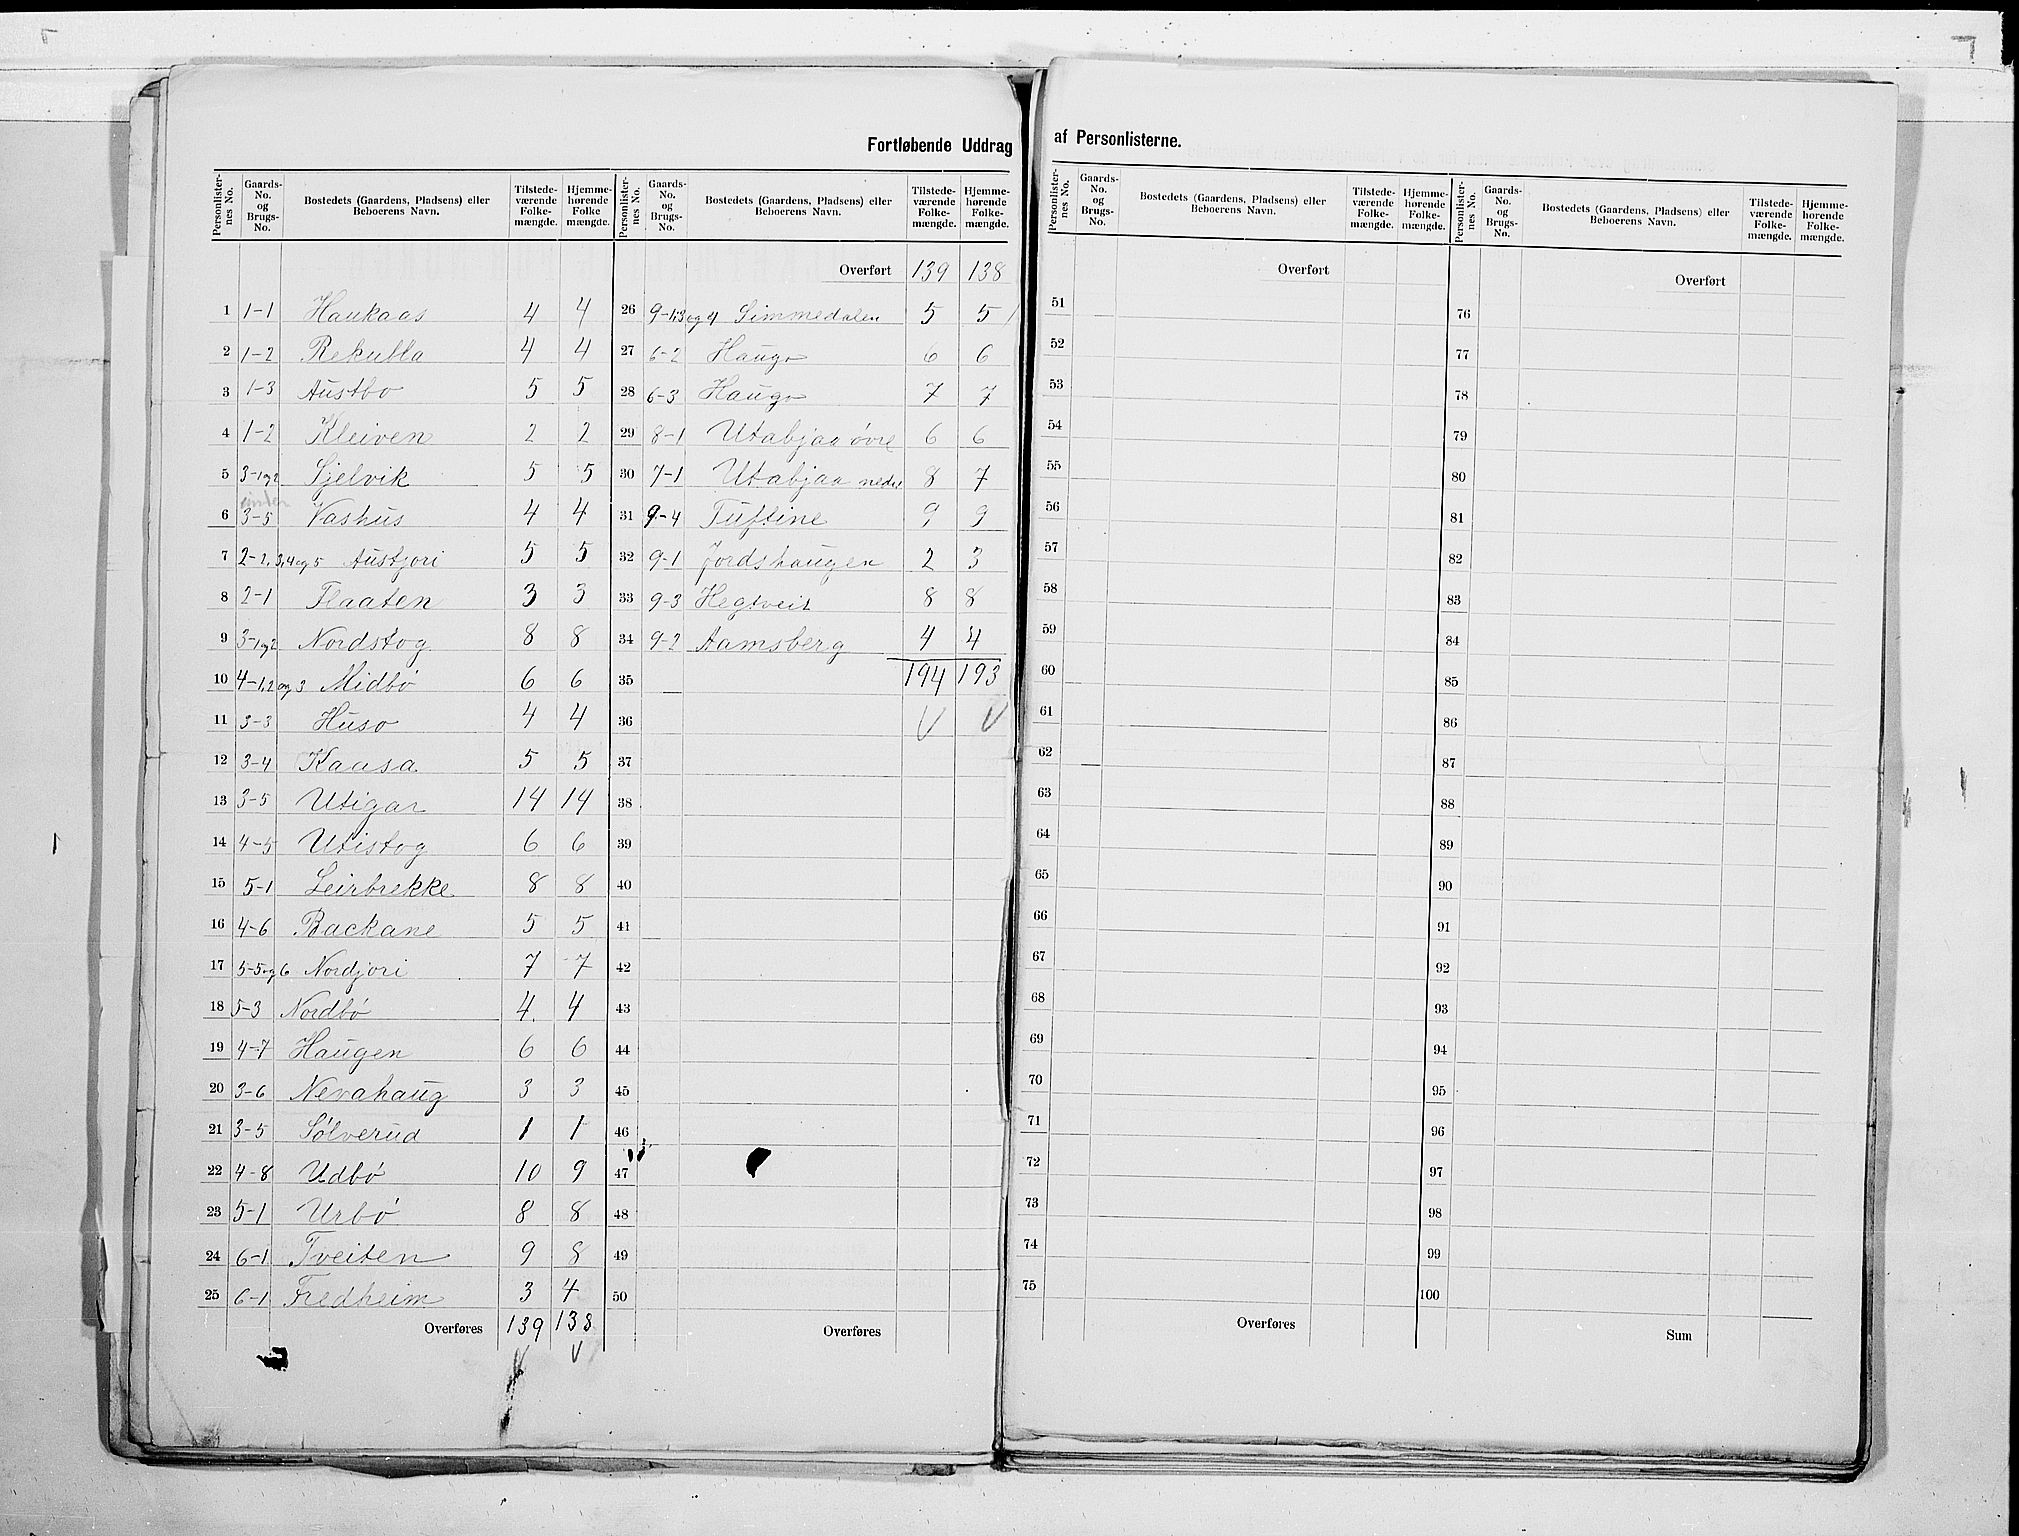 Fortløbende Uddrag af Personlisterne.
Personlister-nes No. | Gaards-No. og Brugs-No. | Bostedets (Gaardens, Pladsens) eller Beboerens Navn. | Tilstede-værende Folke-mængde. | Hjemme-hørende Folke mængde.
1 1-1 Haukaas 4 4
2 1-2 Rekulla 4 4
3 1-3 Austbø 5 5
4 1-2 Kleiven 2 2
5 3-1og2 Sjelvik 5 5
under
6 3-5 Vashus 4 4
7 2-2,3,4og5 Austjori 5 5
8 2-1 Flaaten 3 3
9 3-1og2 Nordstog 8 8
10 4-1,2 og 3 Midbø 6 6
11 3-3 Huso 4 4
12 3-4 Kaasa 5 5
13 3-5 Utigar 14 14
14 4-5 Utistog 6 6
15 5-1 Leirbrekke 8 8
16 4-6 Backane 5 5
17 5-5og6 Nordjori 7 7
18 5-3 Nordbø 4 4
19 4-7 Haugen 6 6
20 3-6 Nevahaug 3 3
21 3-5 Sølverud 1 1
22 4-8 Udbø 10 9
23 5-1 Urbø 8 8
24 6-1 Tveiten 9 8
25 6-1 Fredheim 3 4
Overføres 139 138
Personlister-nes No. | Gaards-No. og Brugs-No. | Bostedets (Gaardens, Pladsens) eller Beboerens Navn. | Tilstede-værende Folke-mængde. | Hjemme-hørende Folke-mængde.
Overført 139 138
26 9-1,3og4 Simmedalen 5 5
27 6-2 Haugo 6 6
28 6-3 Haugo 7 7
29 8-1 Utabjaa øvre 6 6
30 7-1 Utabjaa nedre 8 7
31 9-4 Tuftine 9 9
32 9-1 Jordshaugen 2 3
33 9-3 Hegtveit 8 8
34 9-2 Aamsberg 4 4
35 194 193
36
37
38
39
40
41
42
43
44
45
46
47
48
49
50
Overføres
Personlister-nes No. | Gaards-No. og Brugs-No. | Bostedets (Gaardens, Pladsens) eller Beboerens Navn. | Tilstede-værende Folke-mængde. | Hjemme-hørende Folke-mængde.
Overført
51
52
53
54
55
56
57
58
59
60
61
62
63
64
65
66
67
68
69
70
71
72
73
74
75
Overføres
Personlister-nes No. | Gaards-No. og Brugs-No. | Bostedets (Gaardens, Pladsens) eller Beboerens Navn. | Tilstede-værende Folke-mængde. | Hjemme-hørende Folke-mængde.
Overført
76
77
78
79
80
81
82
83
84
85
86
87
88
89
90
91
92
93
94
95
96
97
98
99
100
Sum